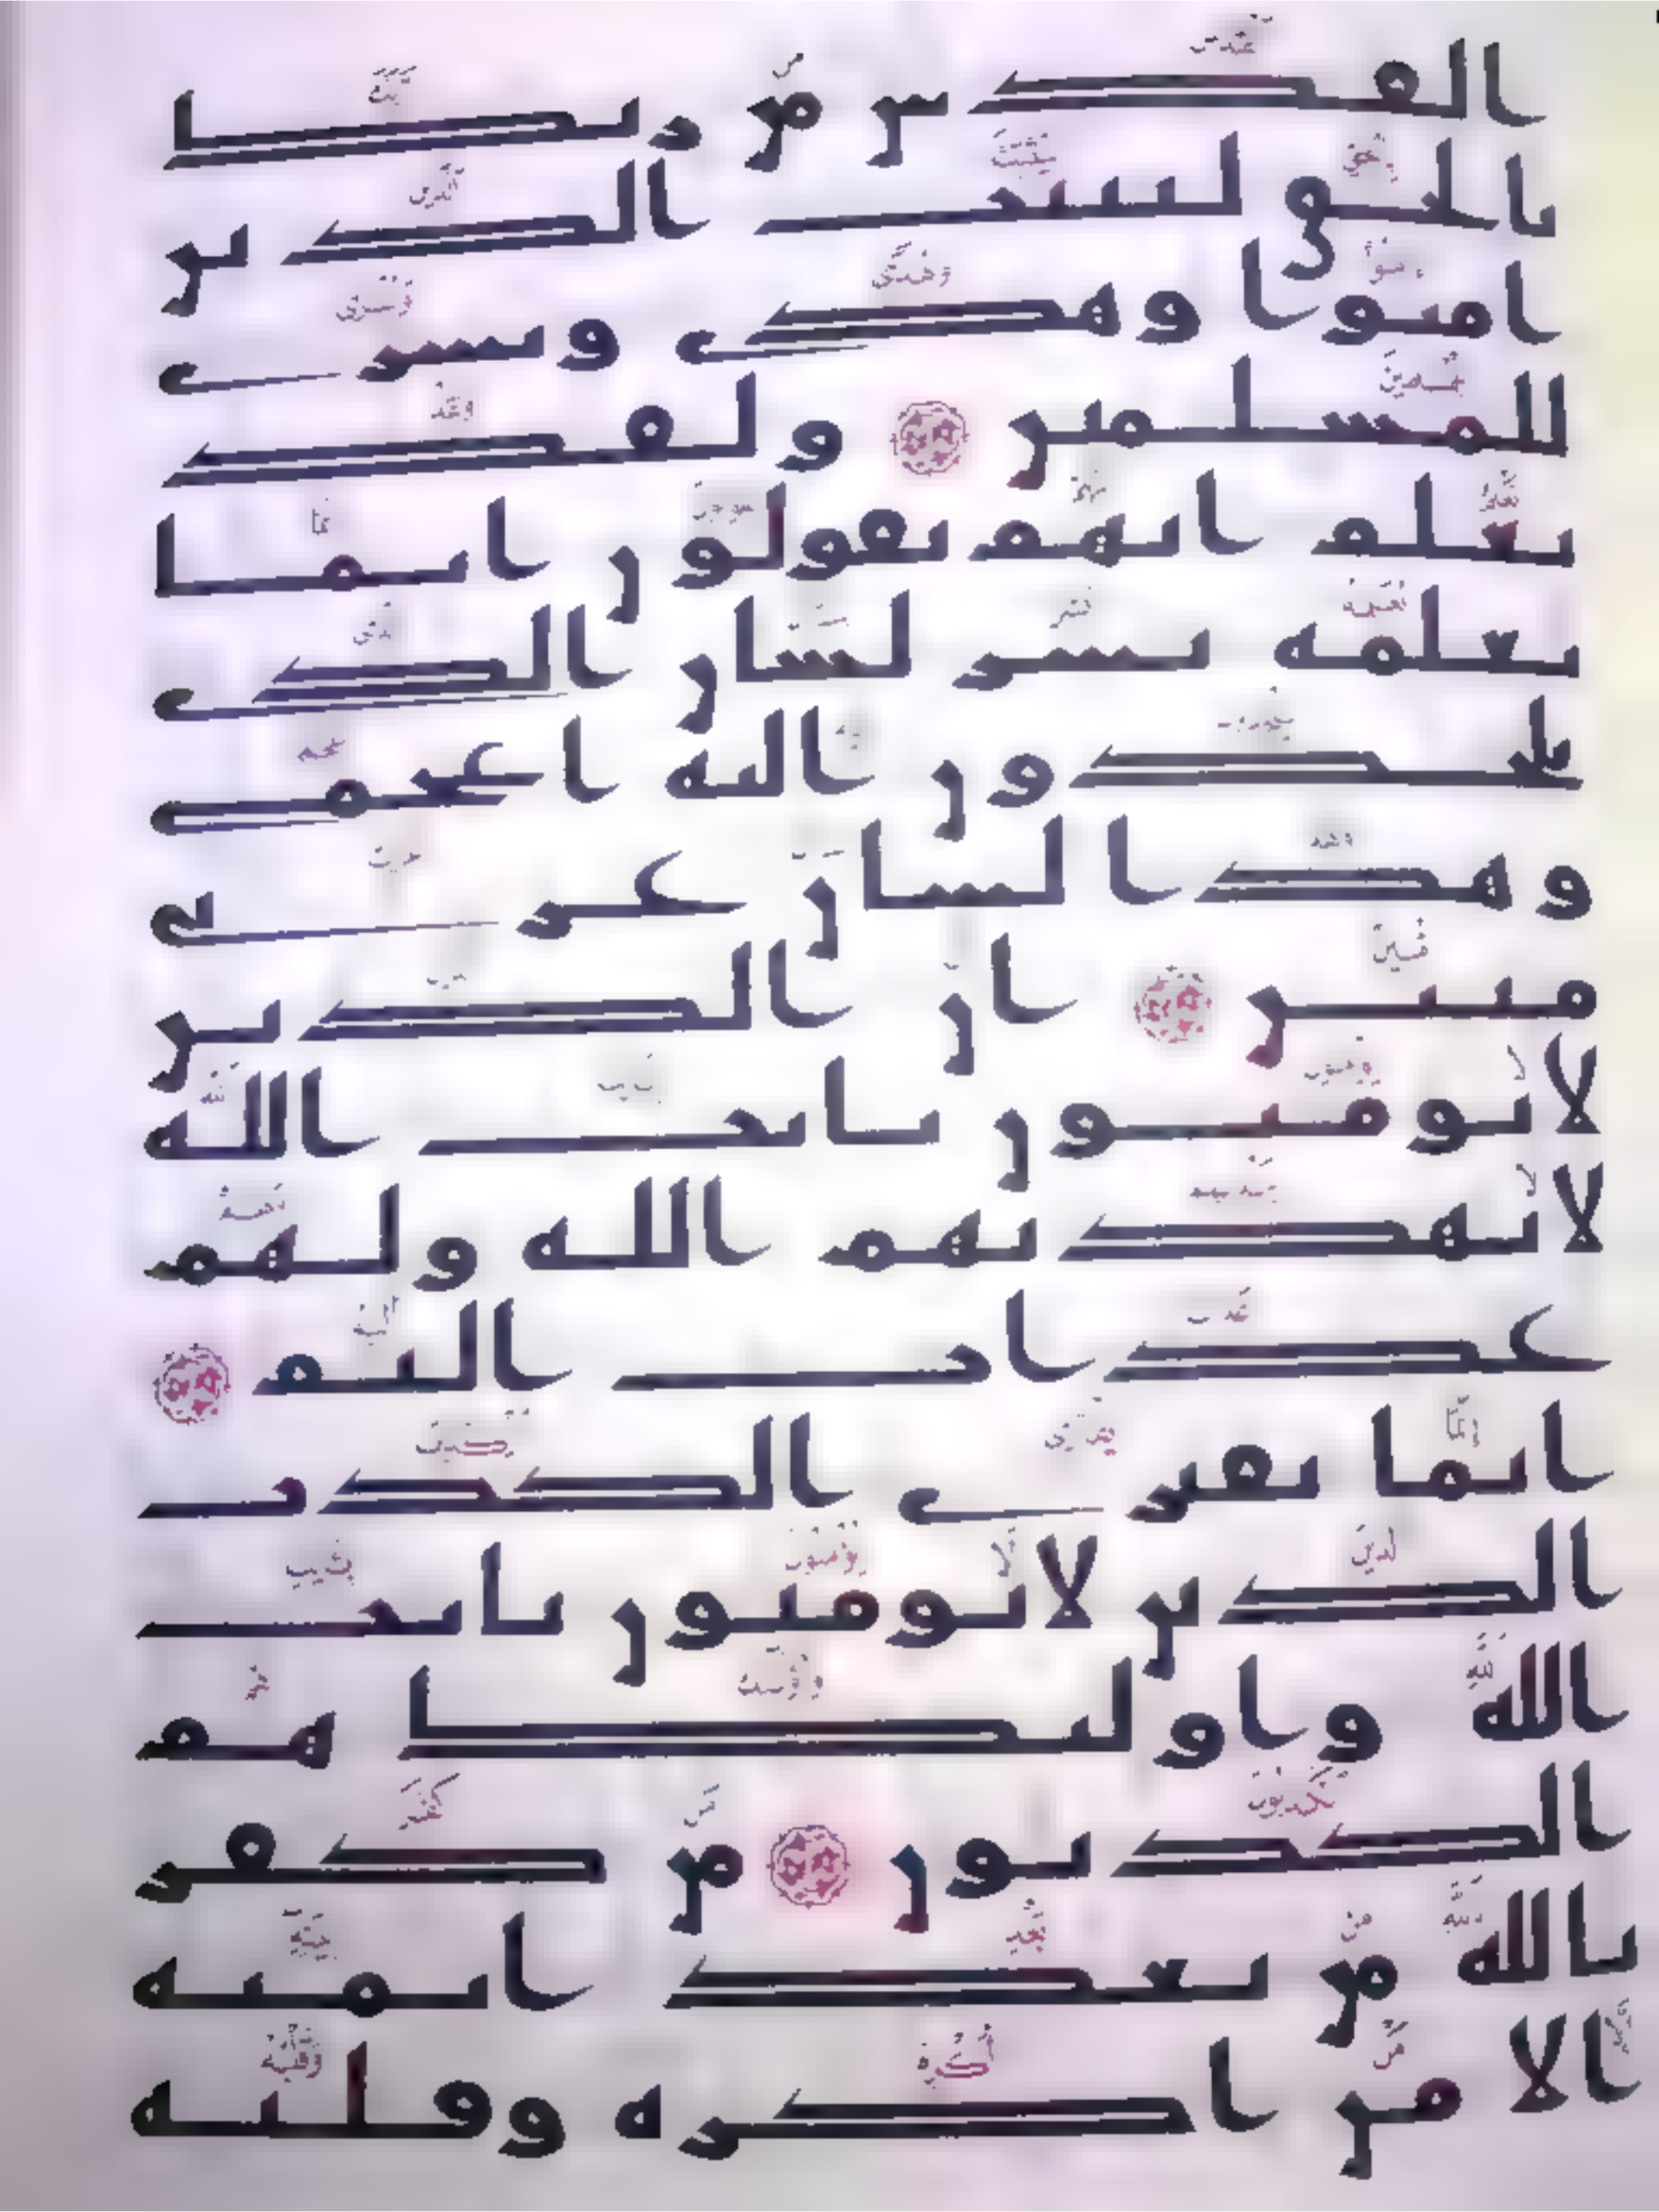 القدس من ربك
بالحق ليثبت الذين
امنوا وهدى وبشرى
للمسلمين ولقد
نعلم انهم يقولون انما
يعلمه بشر لسان الذى
يلحدون اليه اعجمى
وهذا لسان عربى
مبين ان الذين
لا يومنون بايت الله
لا يهديهم الله ولهم
عذاب اليم
انما يفترى الكذب
الذين لا يومنون بايت
الله واوليك هم
الكذبون من كفر
بالله من بعد ايمنه
الا من اكره وقلبه